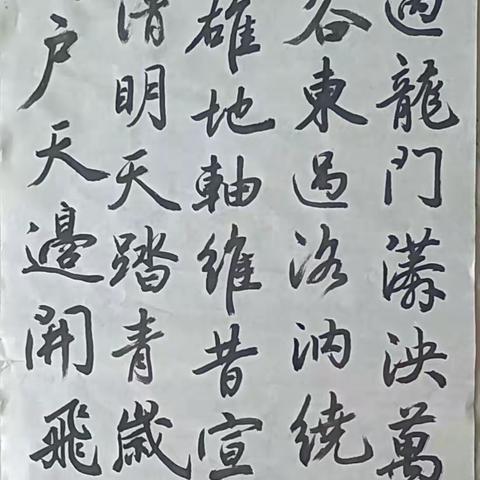 過龍門漭泱萬
谷東過洛汭繞
雄地軸維昔宣
清明天踏青歲
户天邊開飛